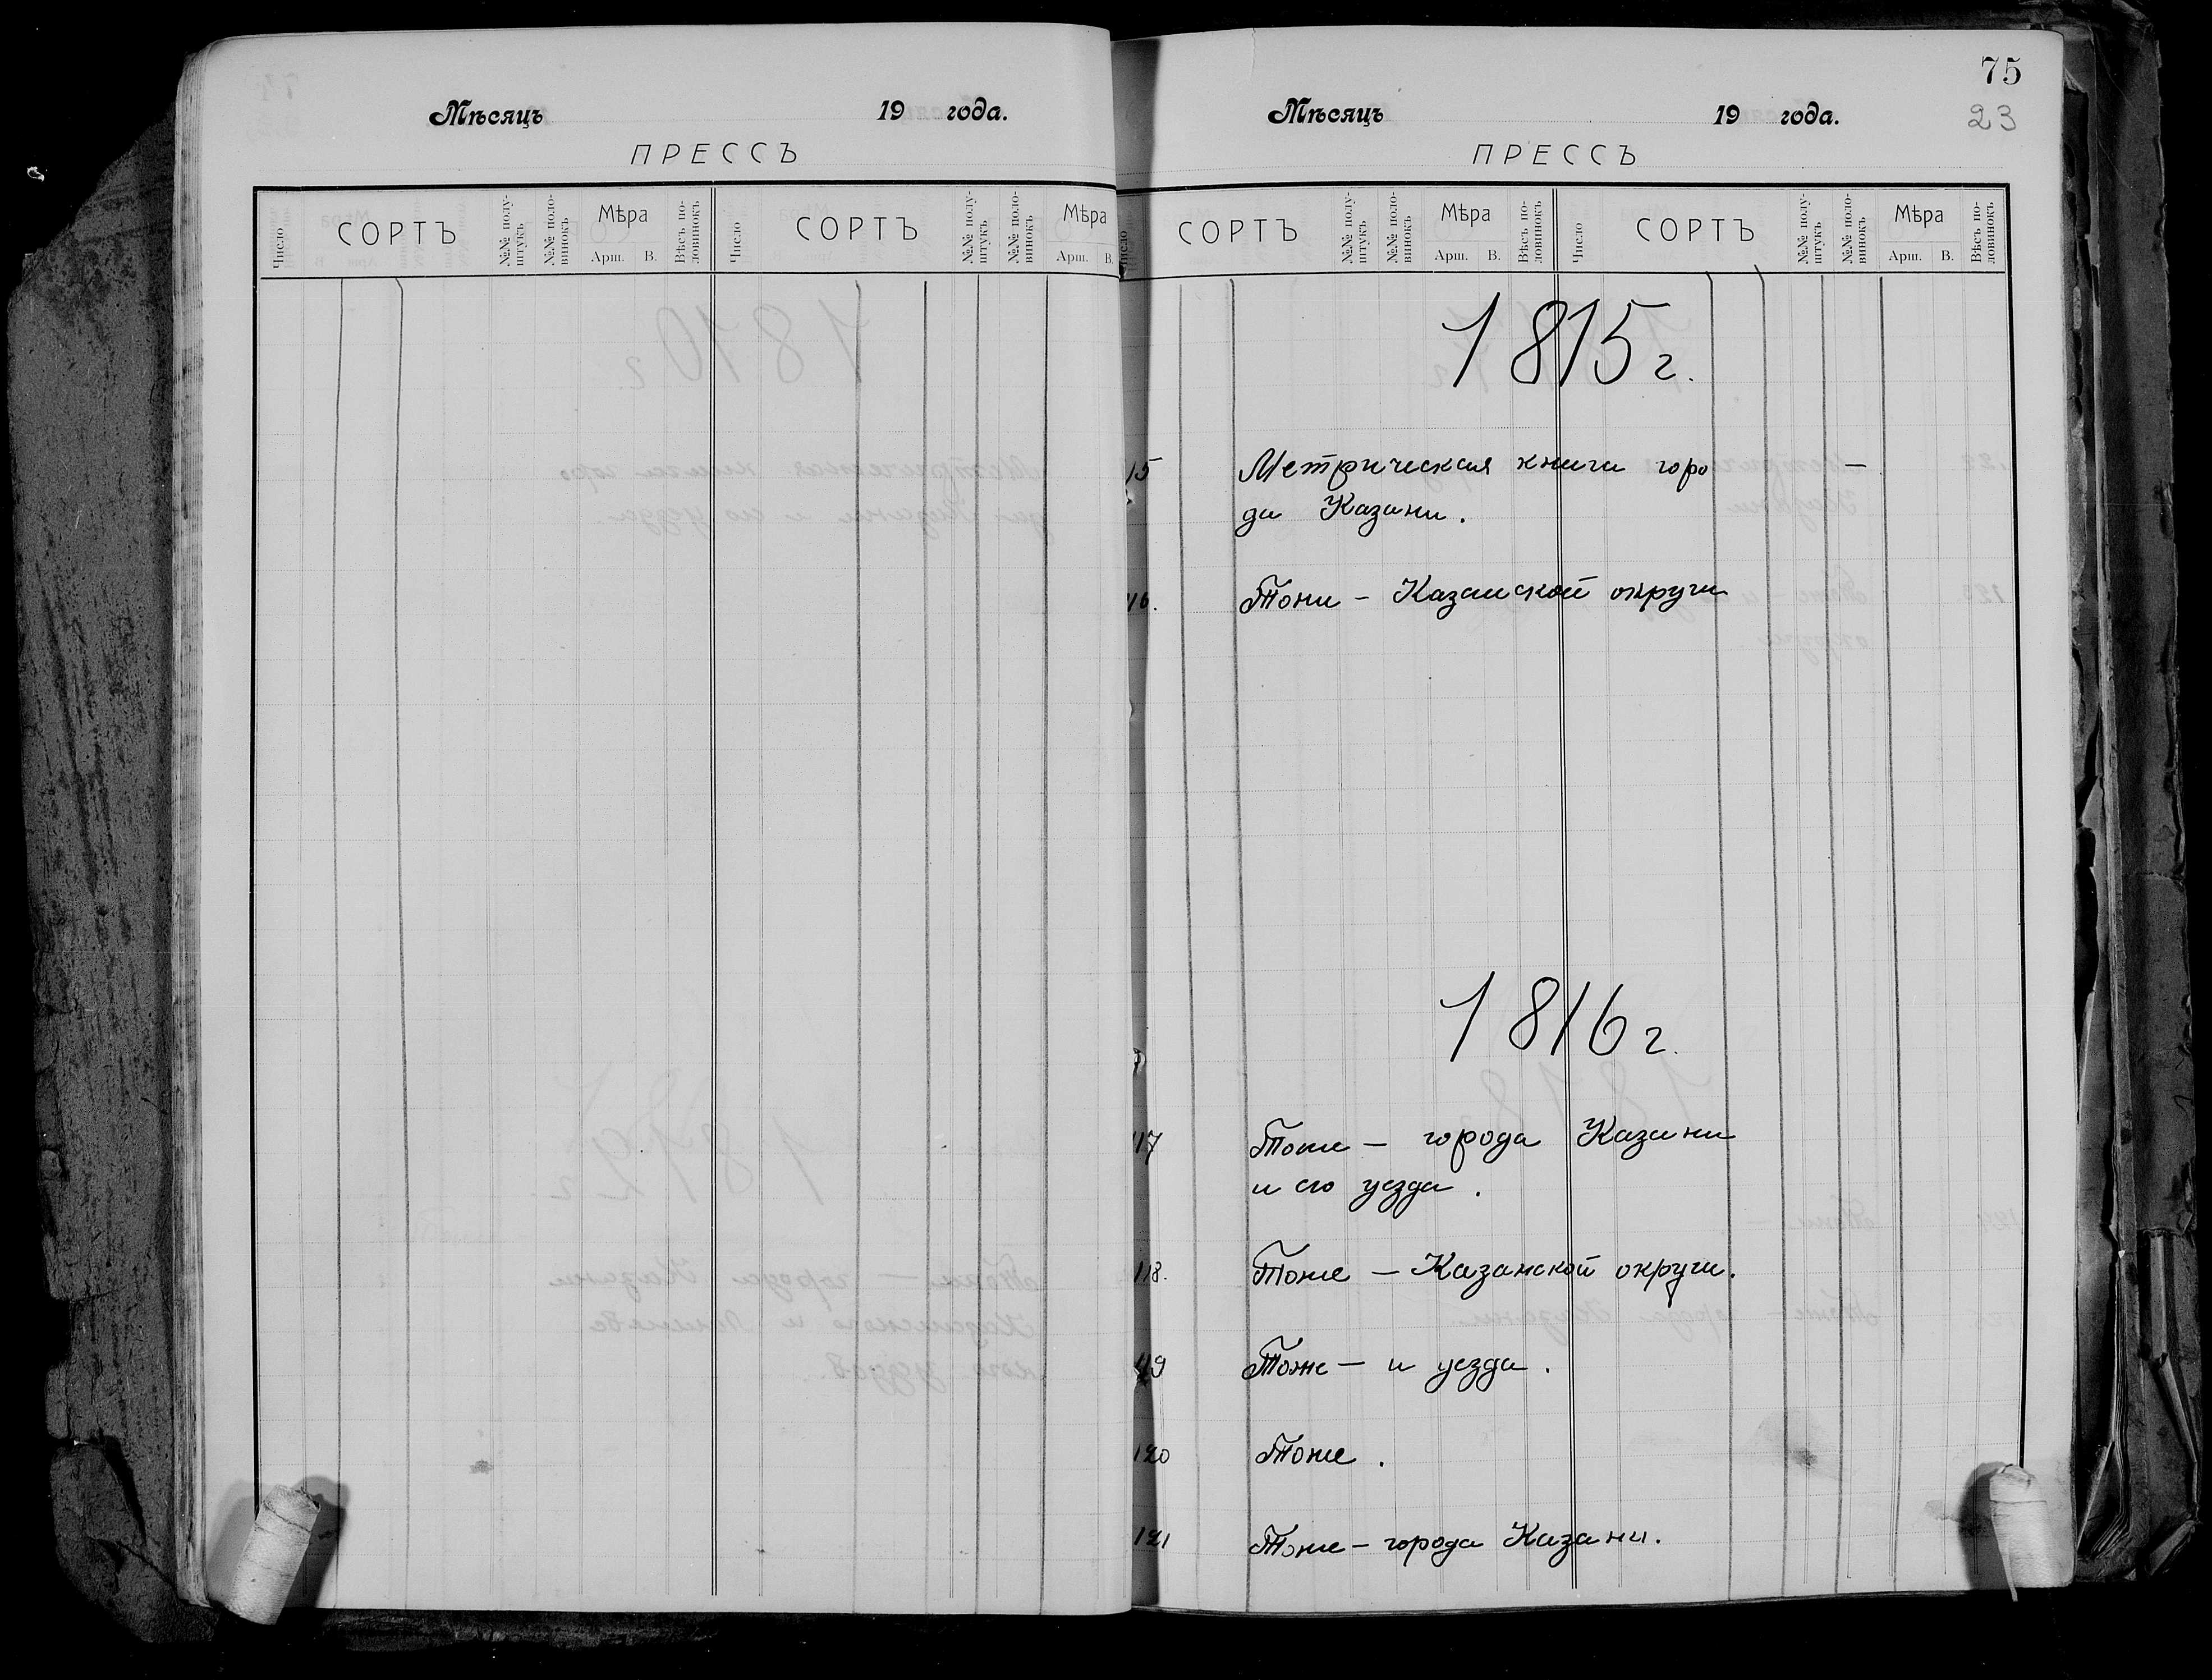 Мѣсяцъ 19 года.
ПРЕССЪ
Число СОРТЪ №№ полу-штукъ №№ поло-винокъ Мѣра Арш. В. Вѣсъ по-ловинокъ Число СОРТЪ №№ полу-штукъ №№ поло-винокъ Мѣра Арш. В.
75
Мѣсяцъ 19 года. 23
ПРЕССЪ
Число СОРТЪ №№ полу-штукъ №№ поло-винокъ Мѣра Арш. В. Вѣсъ по-ловинокъ Число СОРТЪ №№ полу-штукъ №№ поло-винокъ Мѣра Арш. В. Вѣсъ по-ловинокъ
1815 г.
15 Метрическая книга горо —
да Казани.
16. Тоже – Казанской округи
1816 г.
117 Тоже – города Казани
и его уезда.
118. Тоже – Казанской округи.
119 Тоже – и уезда.
120 Тоже.
121 Тоже – города Казани.